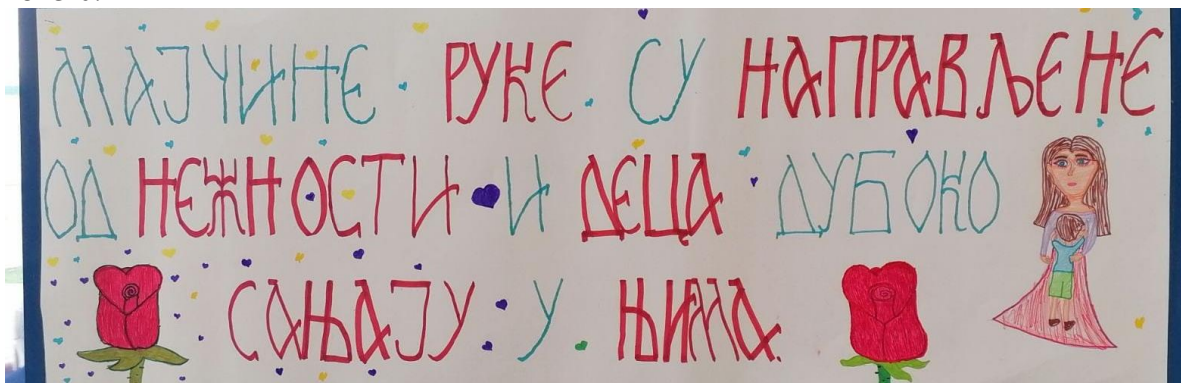 МАЈЧИНЕ РУКЕ СУ НАПРАВЉЕНЕ
ОД НЕЖНОСТИ И ДЕЦА ДУБОКО
САЊАЈУ У ЊИМА.